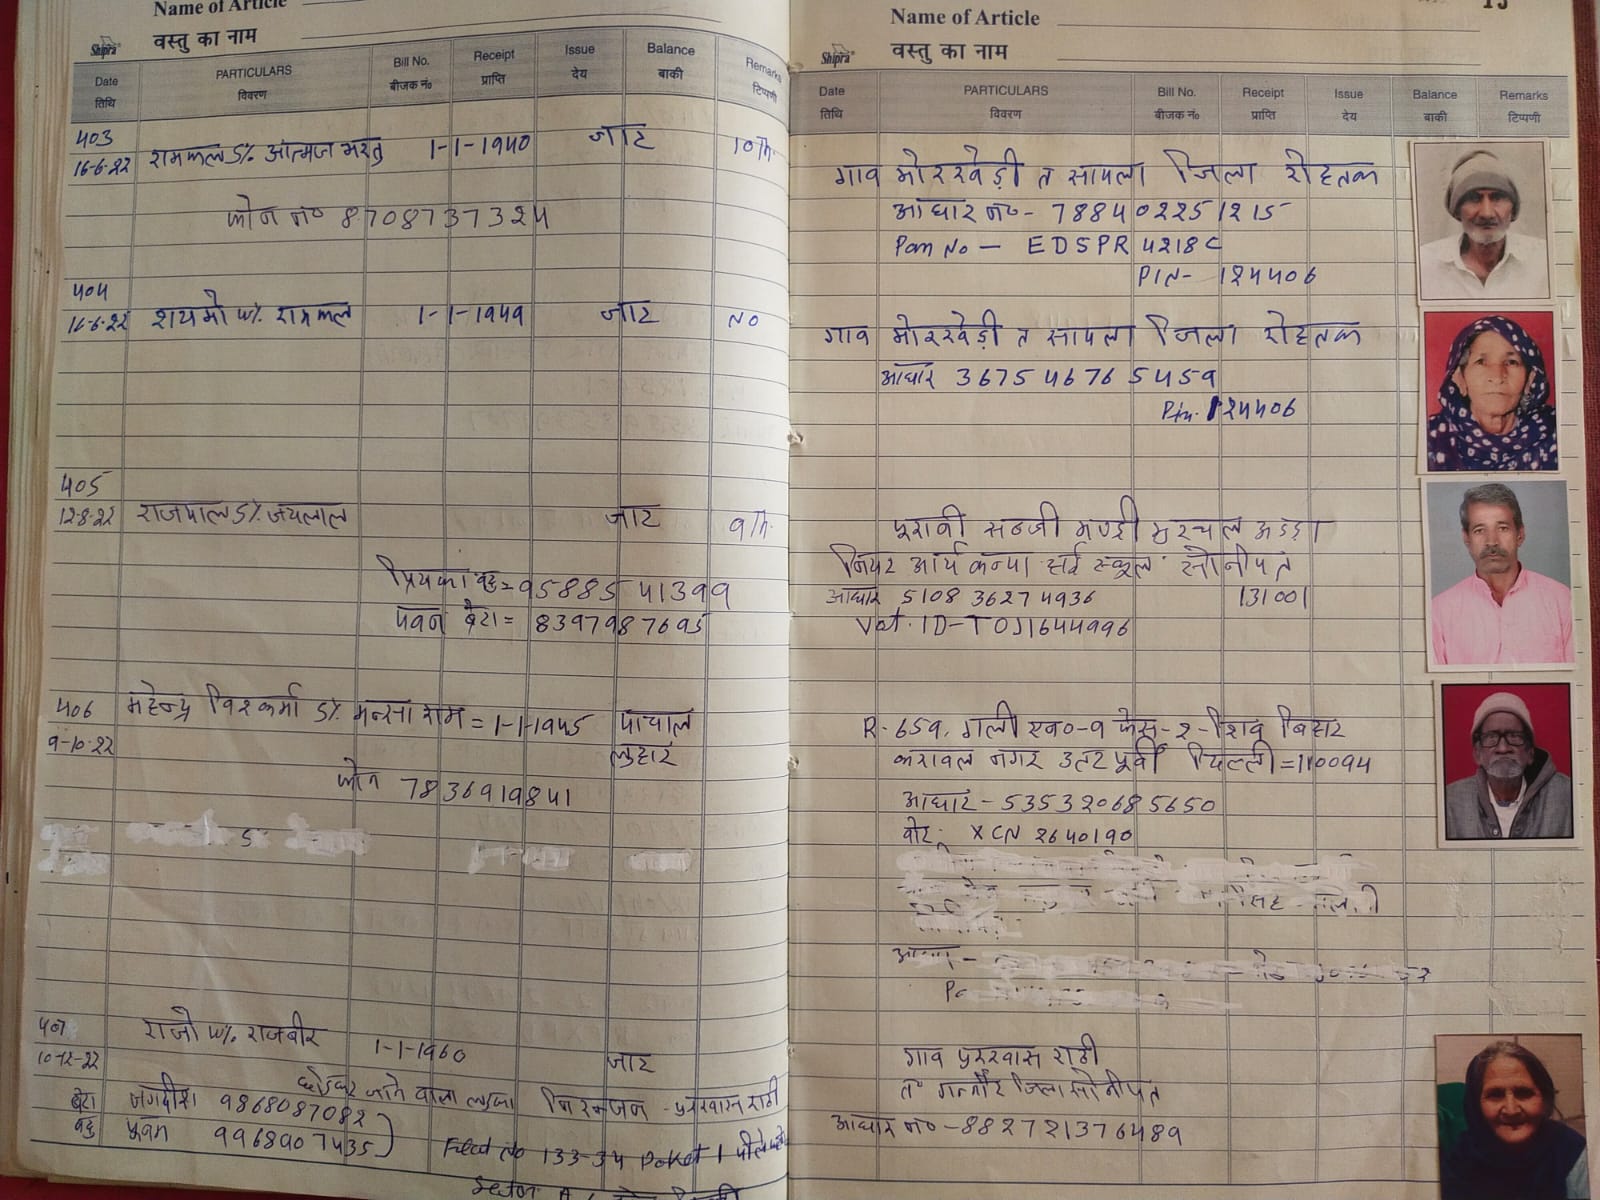 Name of Article
Shipra वस्तु का नाम
Date PARTICULARS Bill No. Receipt Issue Balance Remarks
तिथि विवरण बीजक नं० प्राप्ति देय बाकी टिप्पणी
403
16-6-22 रामफल S/o आत्मज भरतु 1-1-1940 जाट 10th
फोन न० 8708737324
404
16-6-22 w/o रामफल 1-1-1949 जाट NO
405
12-8-22 राजपाल S/o जयलाल जाट 9th
प्रियंका बहु = 95885 41399
पवन बेटा = 8397987695
406 महेन्द्र विश्कर्मा S/o मन्सा राम = 1-1-1945 पांचाल
9-10-22 लुहार
फोन 7836919841
407 राजो w/o राजबीर
10-12-22 1-1-1960 जाट
छोडकर जाने वाला लडका निरन्जन
बेटा जगदीश 9868087082
बहु पूनम 9968907435
133-34 Poket 1
Sector A
15
Name of Article
Shipra वस्तु का नाम
Date PARTICULARS Bill No. Receipt Issue Balance Remarks
तिथि विवरण बीजक नं० प्राप्ति देय बाकी टिप्पणी
गाव मोरखेड़ी त सापला जिला रोहतक
आधार न०- 788402251215
Pan No - EDSPR 4218C
PIN- 124406
गाव मोरखेड़ी त सापला जिला रोहतक
आधार 367546765459
Pin. 124406
पुरानी सब्जी मण्डी अड्डा
नियर आर्य कन्या हाई स्कूल सोनीपत
आधार 5108 3627 4936 131001
Vot. ID-TOJ1644996
R-659, गली न०-9 फेस-2- शिव विहार
करावल नगर उतर पूर्वी दिल्ली = 110094
आधार - 535320685650
वोट XCN 2640190
गाव राठी
त० गन्नौर जिला सोनीपत
आधार न० - 882721376489